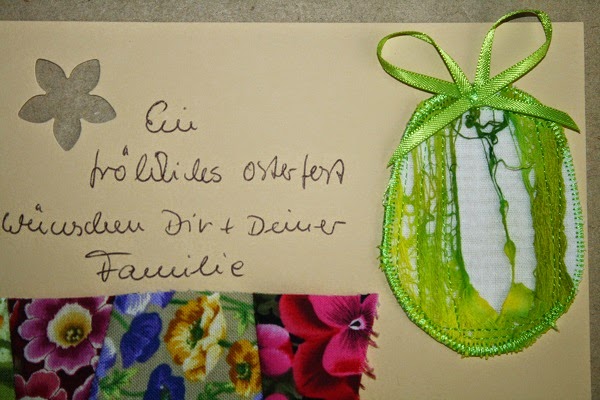 Ein
fröhliches Osterfest
wünschen Dir + Deiner
Familie